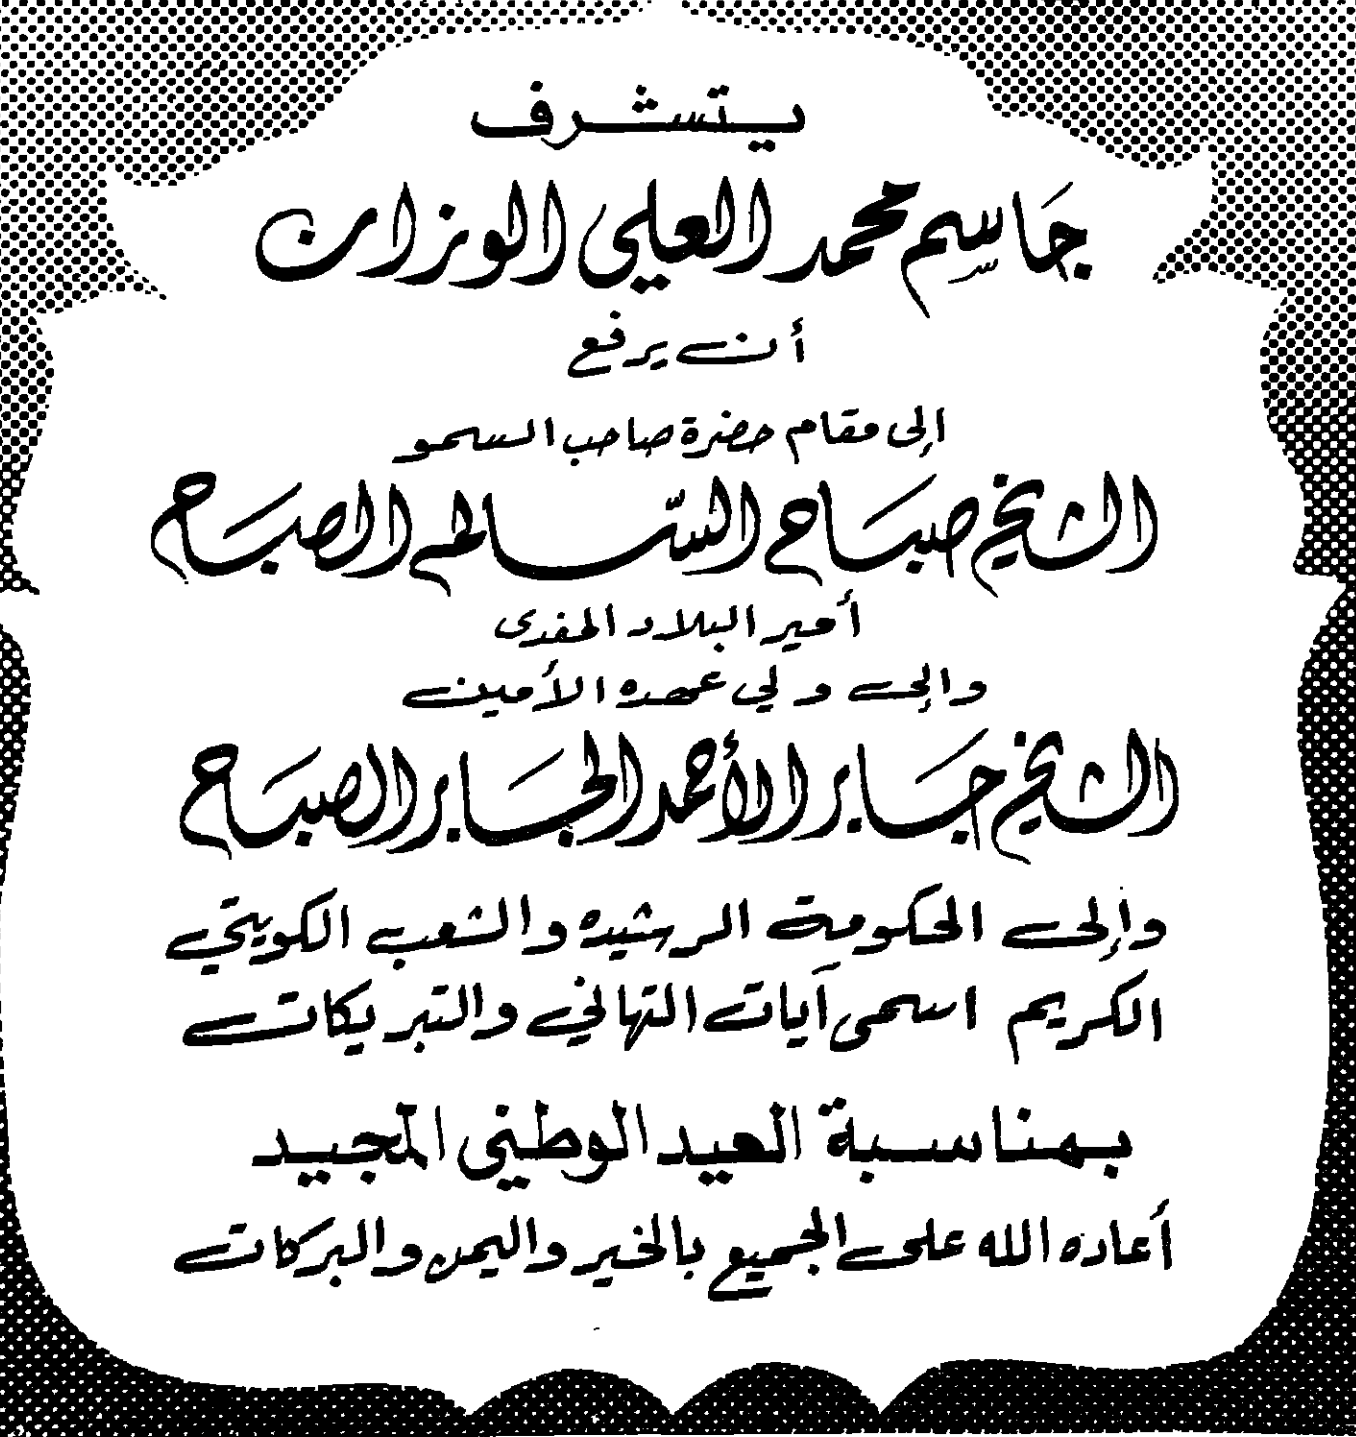 يتشرف
جاسم محمد العلي الوزان
أن يرفع
إلى مقام حضرة صاحب السمو
الشيخ صباح السالم الصباح
أمير البلاد المفدى
وإلى ولي عهده الأمين
الشيخ جابر الأحمد الجابر الصباح
وإلى الحكومة الرشيده والشعب الكويتي
الكريم اسمى آيات التهاني والتبريكات
بمناسبة العيد الوطني المجيد
أعاده الله على الجميع بالخير واليمن والبركات